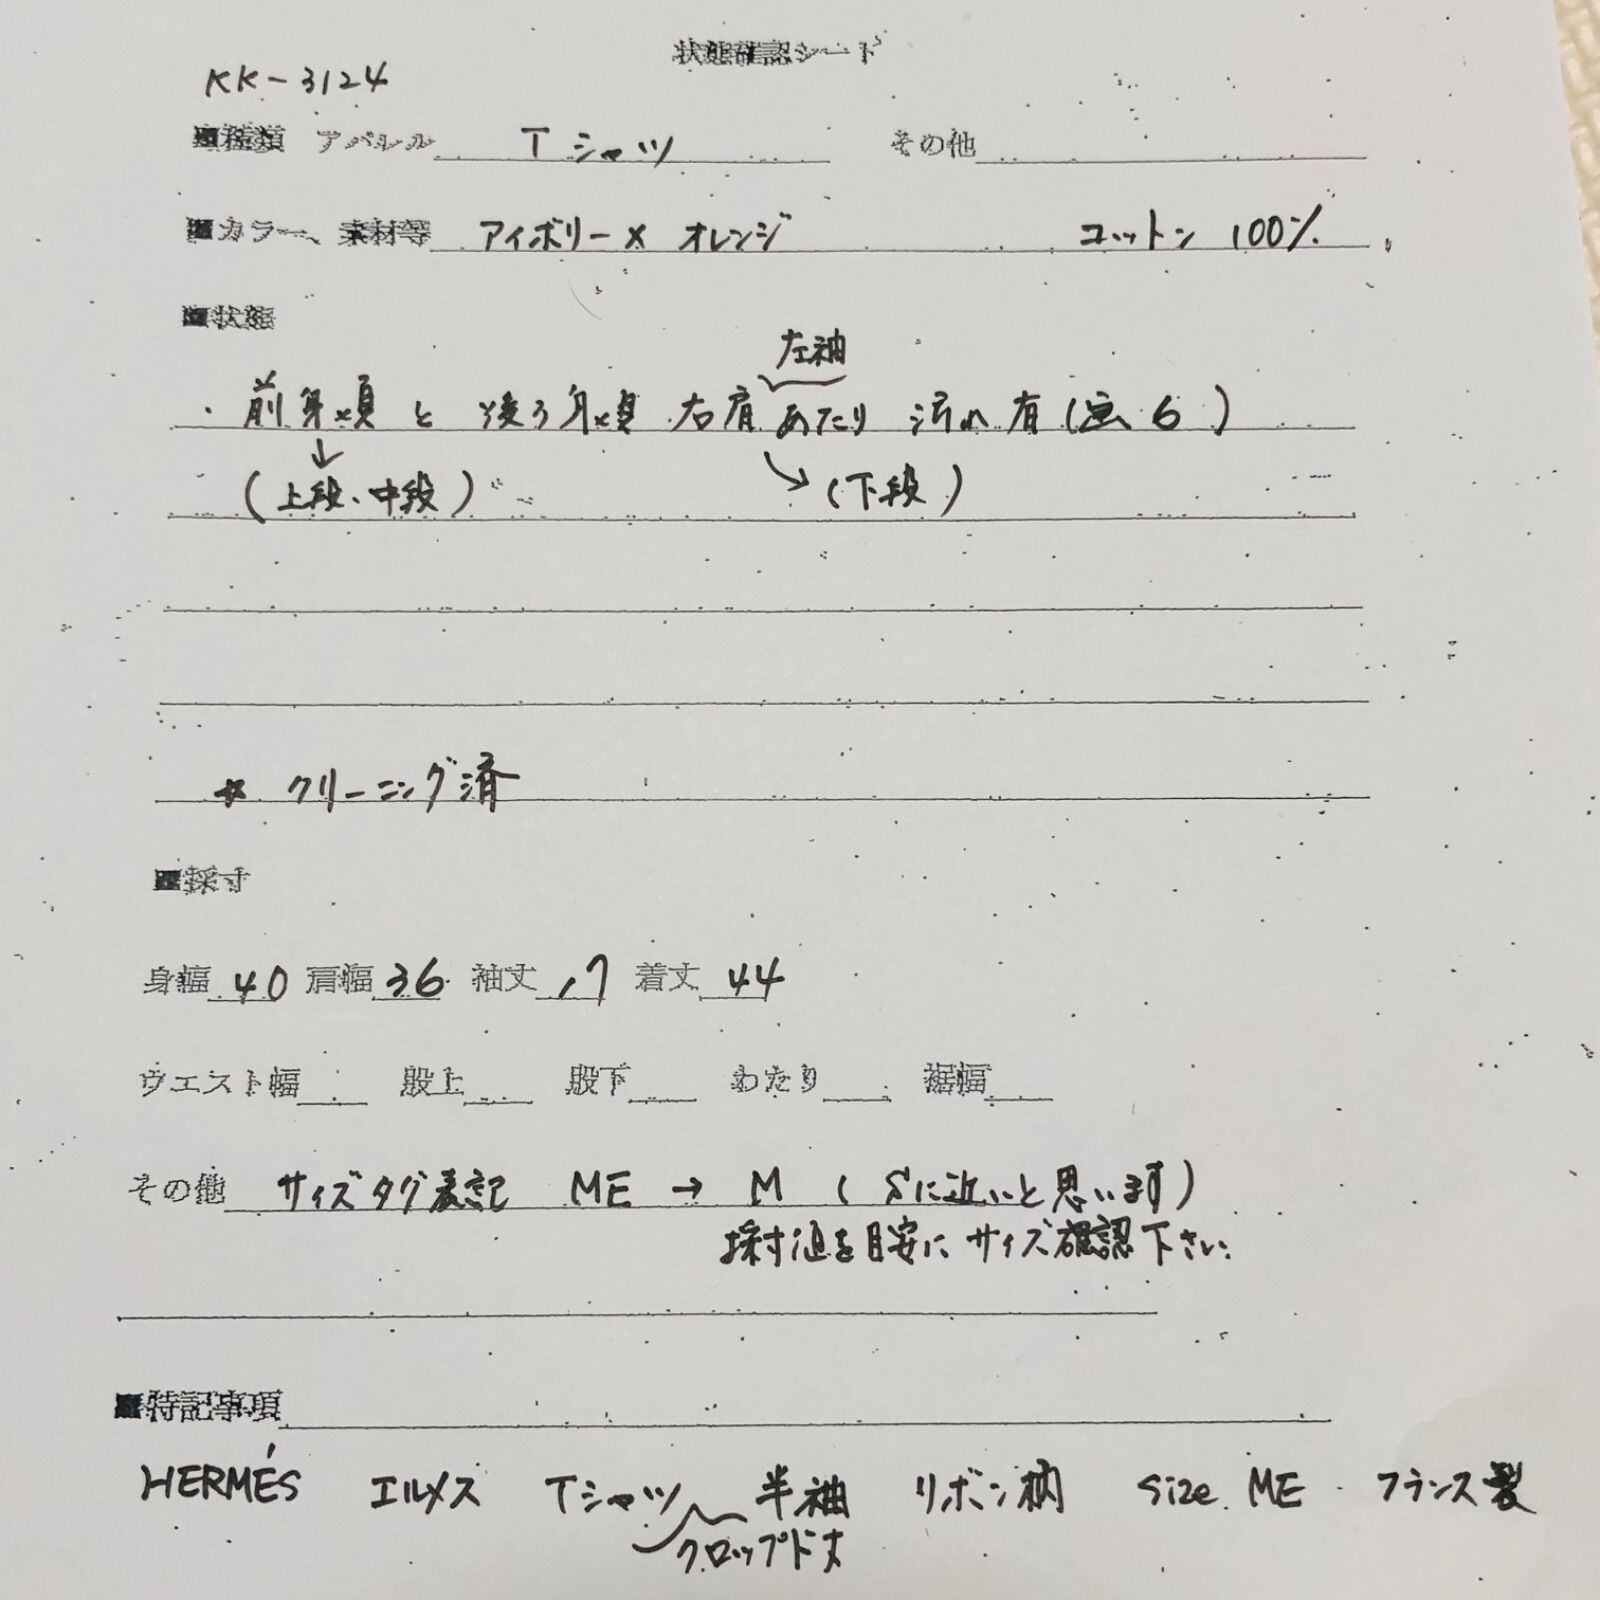 状態確認シート
KK-3124
■種類 アパレル Tシャツ その他
■カラー、素材等 アイボリー×オレンジ コットン 100%
■状態
左袖
・前身頃と後ろ身頃 右肩 あたり 汚れ有(画6)
↓ ↘
(上段、中段) (下段)
☆ クリーニング済
■採寸
身幅 40 肩幅 36 袖丈 17 着丈 44
ウエスト幅 股上 股下 わたり 裾幅
その他 サイズタグ表記 ME → M (Sに近いと思います)
採寸値を目安に サイズ確認下さい
■特記事項
HERMÉS エルメス Tシャツ 半袖 リボン柄 size ME フランス製
クロップド丈